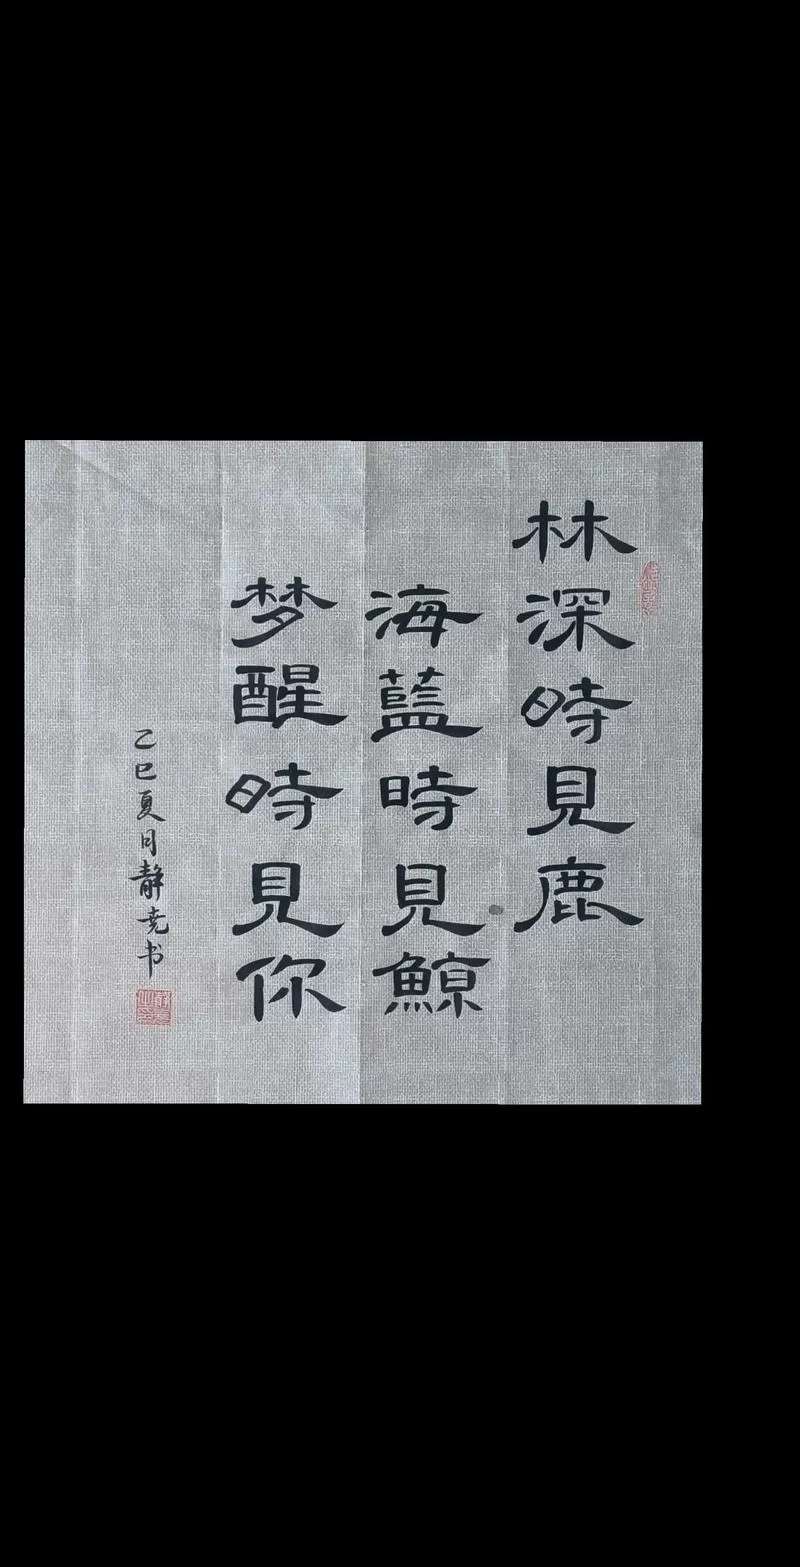 林深時見鹿
海藍時見鯨
梦醒時見你
乙巳夏月静尧书